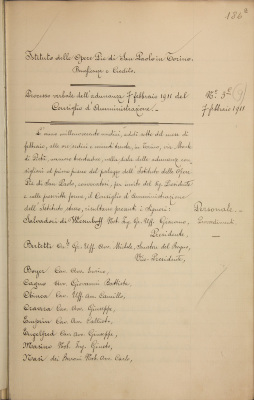 186
Istituto delle Opere Pie di San Paolo in Torino.
Beneficenza e Credito.
Processo verbale dell'adunanza 7 febbraio 1911 del
Consiglio d'Amministrazione.
N.° 3
7 febbraio 1911
L'anno millenovecento undici, addì sette del mese di
febbraio, alle ore sedici e minuti trenta, in Torino, via Monte
di Pietà, numero trentadue, nella sala delle adunanze con-
sigliari al primo piano del palazzo dell'Istituto delle Opere
Pie di San Paolo, convocatosi, per invito del Sig. Presidente
e nelle prescritte forme, il Consiglio di Amministrazione
dell'Istituto stesso, risultano presenti i signori:
Personale.
Provvedimenti
Salvadori di Wiesenhoff Nob. Ing. Gr. Uff. Giacomo,
Presidente,
Bertetti Avv. Gr. Uff. Michele, Senatore del Regno,
Vice Presidente,
Boyer Cav. Avv. Enrico,
Cagno Avv. Giovanni Battista,
Cav. Uff. Avv. Camillo,
Cravera Cav. Avv. Giuseppe,
Cav. Avv.
Engelfred Cav. Avv. Giuseppe,
Masino Nob. Ing. Guido,
Nasi dei Baroni Nob. Avv. Carlo,